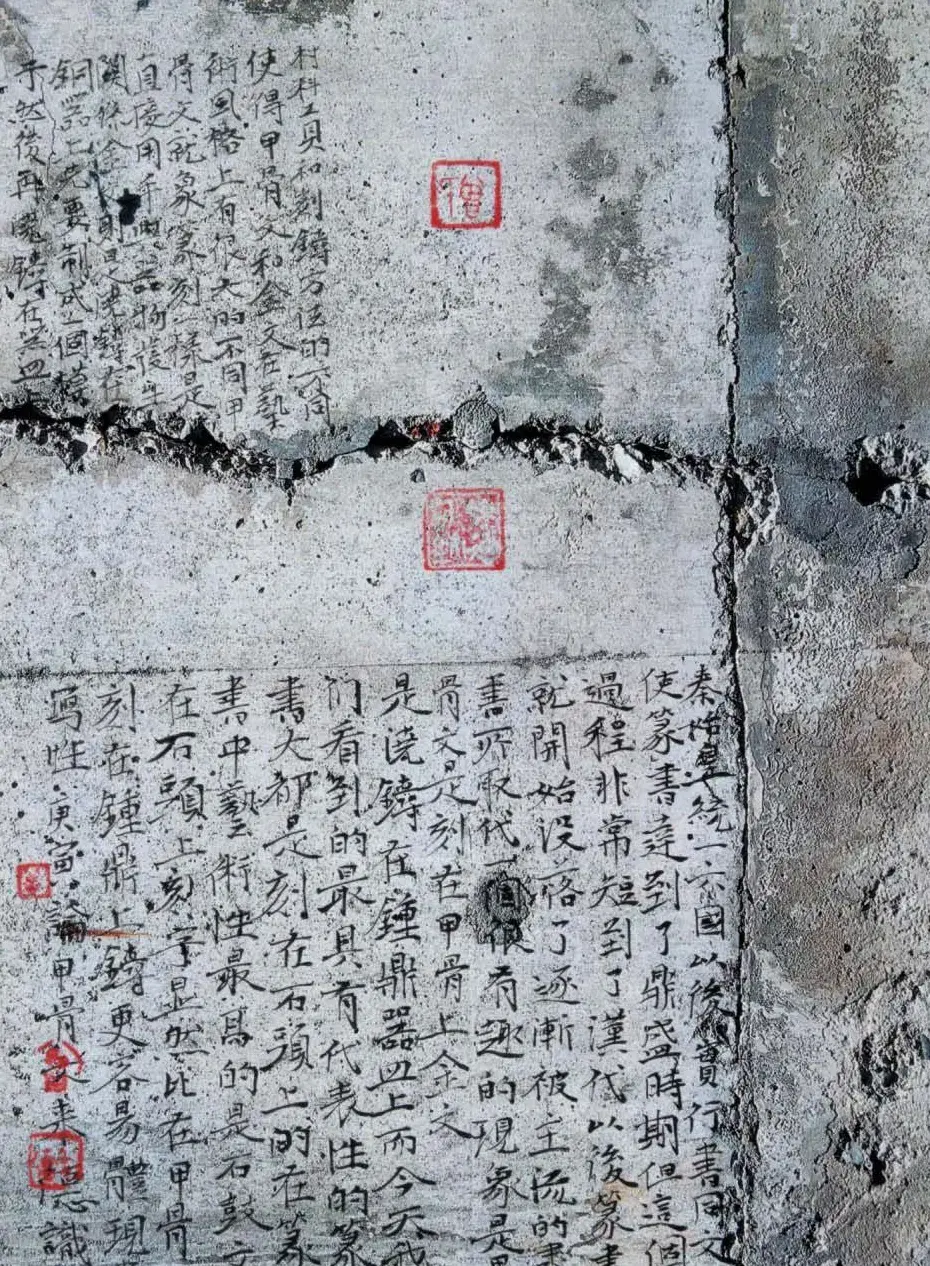 材料工具和刻鑄方法的不同
使得甲骨文和金文在藝
術風格上有很大的不同甲
骨文就象篆刻一樣是
直接用手與器物發生
關係金 則是澆鑄在
銅器上先要制成一個模
子然後再澆鑄在器皿上
秦始皇統一六國以後實行書同文
使篆書達到了鼎盛時期但這個
過程非常短到了漢代以後篆書
就開始没落了逐漸被主流的
書所取代一個很有趣的現象是甲
骨文是刻在甲骨上金文
是澆鑄在鍾鼎器皿上而今天我
们看到的最具有代表性的篆
書大都是刻在石頭上的在篆
書中藝術性最高的是石鼓文
在石頭上刻字显然比在甲骨
刻在鍾鼎上鑄更容易體現
寫性庚寅論甲骨文 識